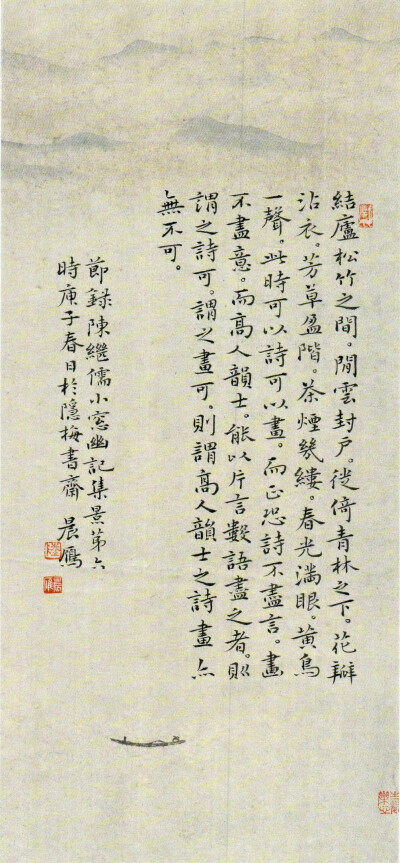 結廬松竹之間。閒雲封户。徙倚青林之下。花瓣
沾衣。芳草盈階。茶煙幾縷。春光滿眼。黃鳥
一聲。此時可以詩可以畫。而正恐詩不盡言。畫
不盡意。而高人韻士。能以片言數語盡之者。則
謂之詩可。謂之畫可。則謂高人韻士之詩畫亦
無不可。
節録陳繼儒小窓幽記集景第六
時庚子春日於隱梅書齋 晨鴈